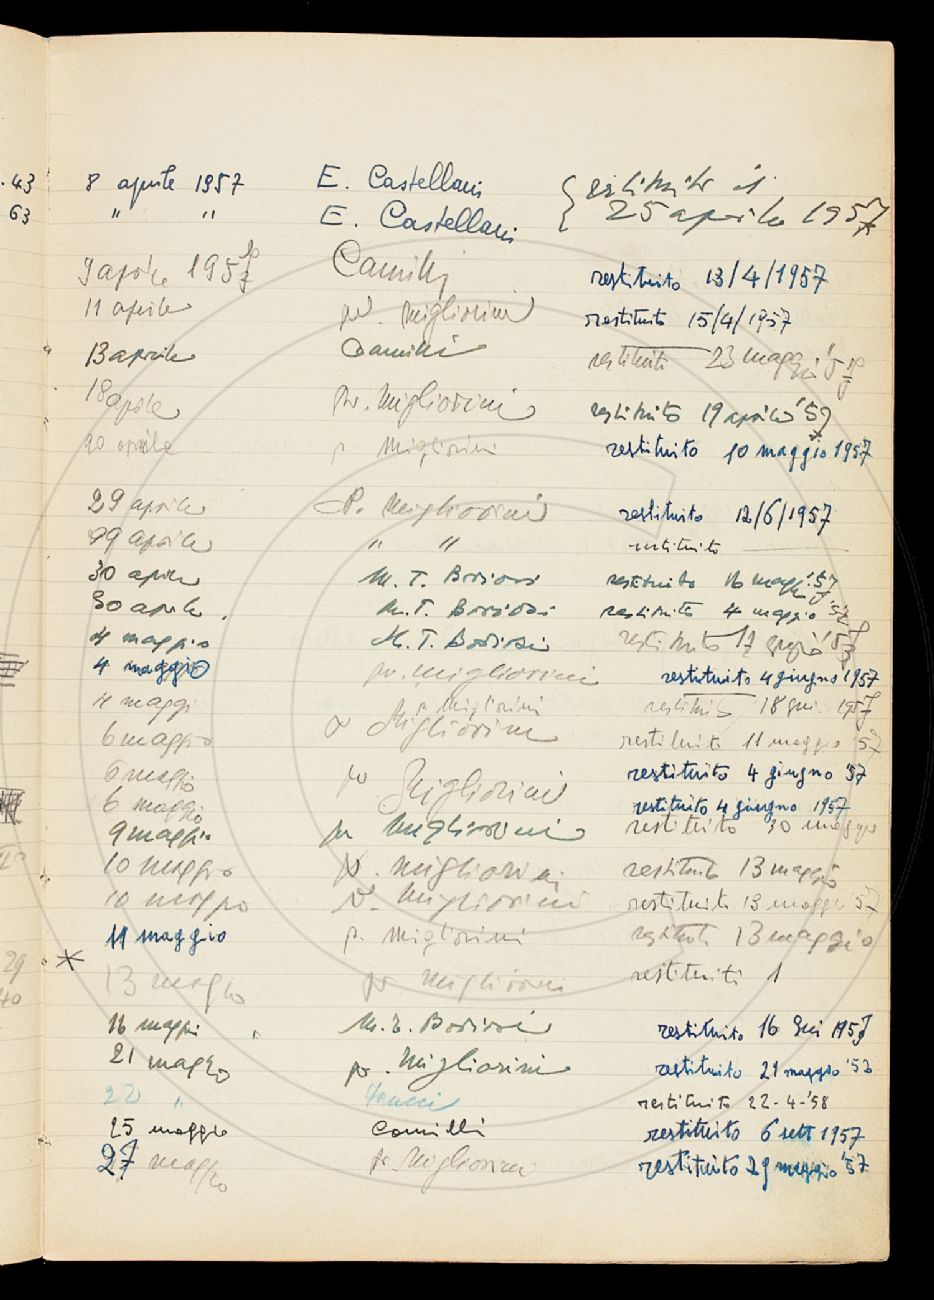 .43 8 aprile 1957 E. Castellani { restituiti il
63 " " E. Castellani 25 aprile 1957
9 aprile 1957 Camilli restituito 13/4/1957
11 aprile Migliorini restituito 15/4/1957
13 aprile Camilli restituiti 23 maggio
18 aprile Migliorini restituito 19 aprile '57
20 aprile p. Migliorini restituito 10 maggio 1957
29 aprile P. Migliorini restituito 12/6/1957
29 aprile " " restituito
30 aprile M. T. restituito 16 maggio '57
30 aprile M. T. restituito 4 maggio '57
4 maggio M. T. restituito 17
4 maggio Migliorini restituito 4 giugno 1957
4 maggio p. Migliorini restituito 18 1957
6 maggio Migliorini restituito 11 maggio '57
6 maggio Migliorini restituito 4 giugno '57
6 maggio restituito 4 giugno 1957
9 maggio Migliorini restituito 30 maggio
10 maggio Migliorini restituito 13 maggio
10 maggio Migliorini restituiti 13 maggio 57
11 maggio p. Migliorini restituiti 13 maggio
29 13 maggio Migliorini restituiti
16 maggio restituito 16 1957
21 maggio Migliorini restituito 21 maggio '57
22 " restituito 22-4-'58
25 maggio Camilli restituito 6 sett 1957
27 maggio Migliorini restituito 29 maggio '57